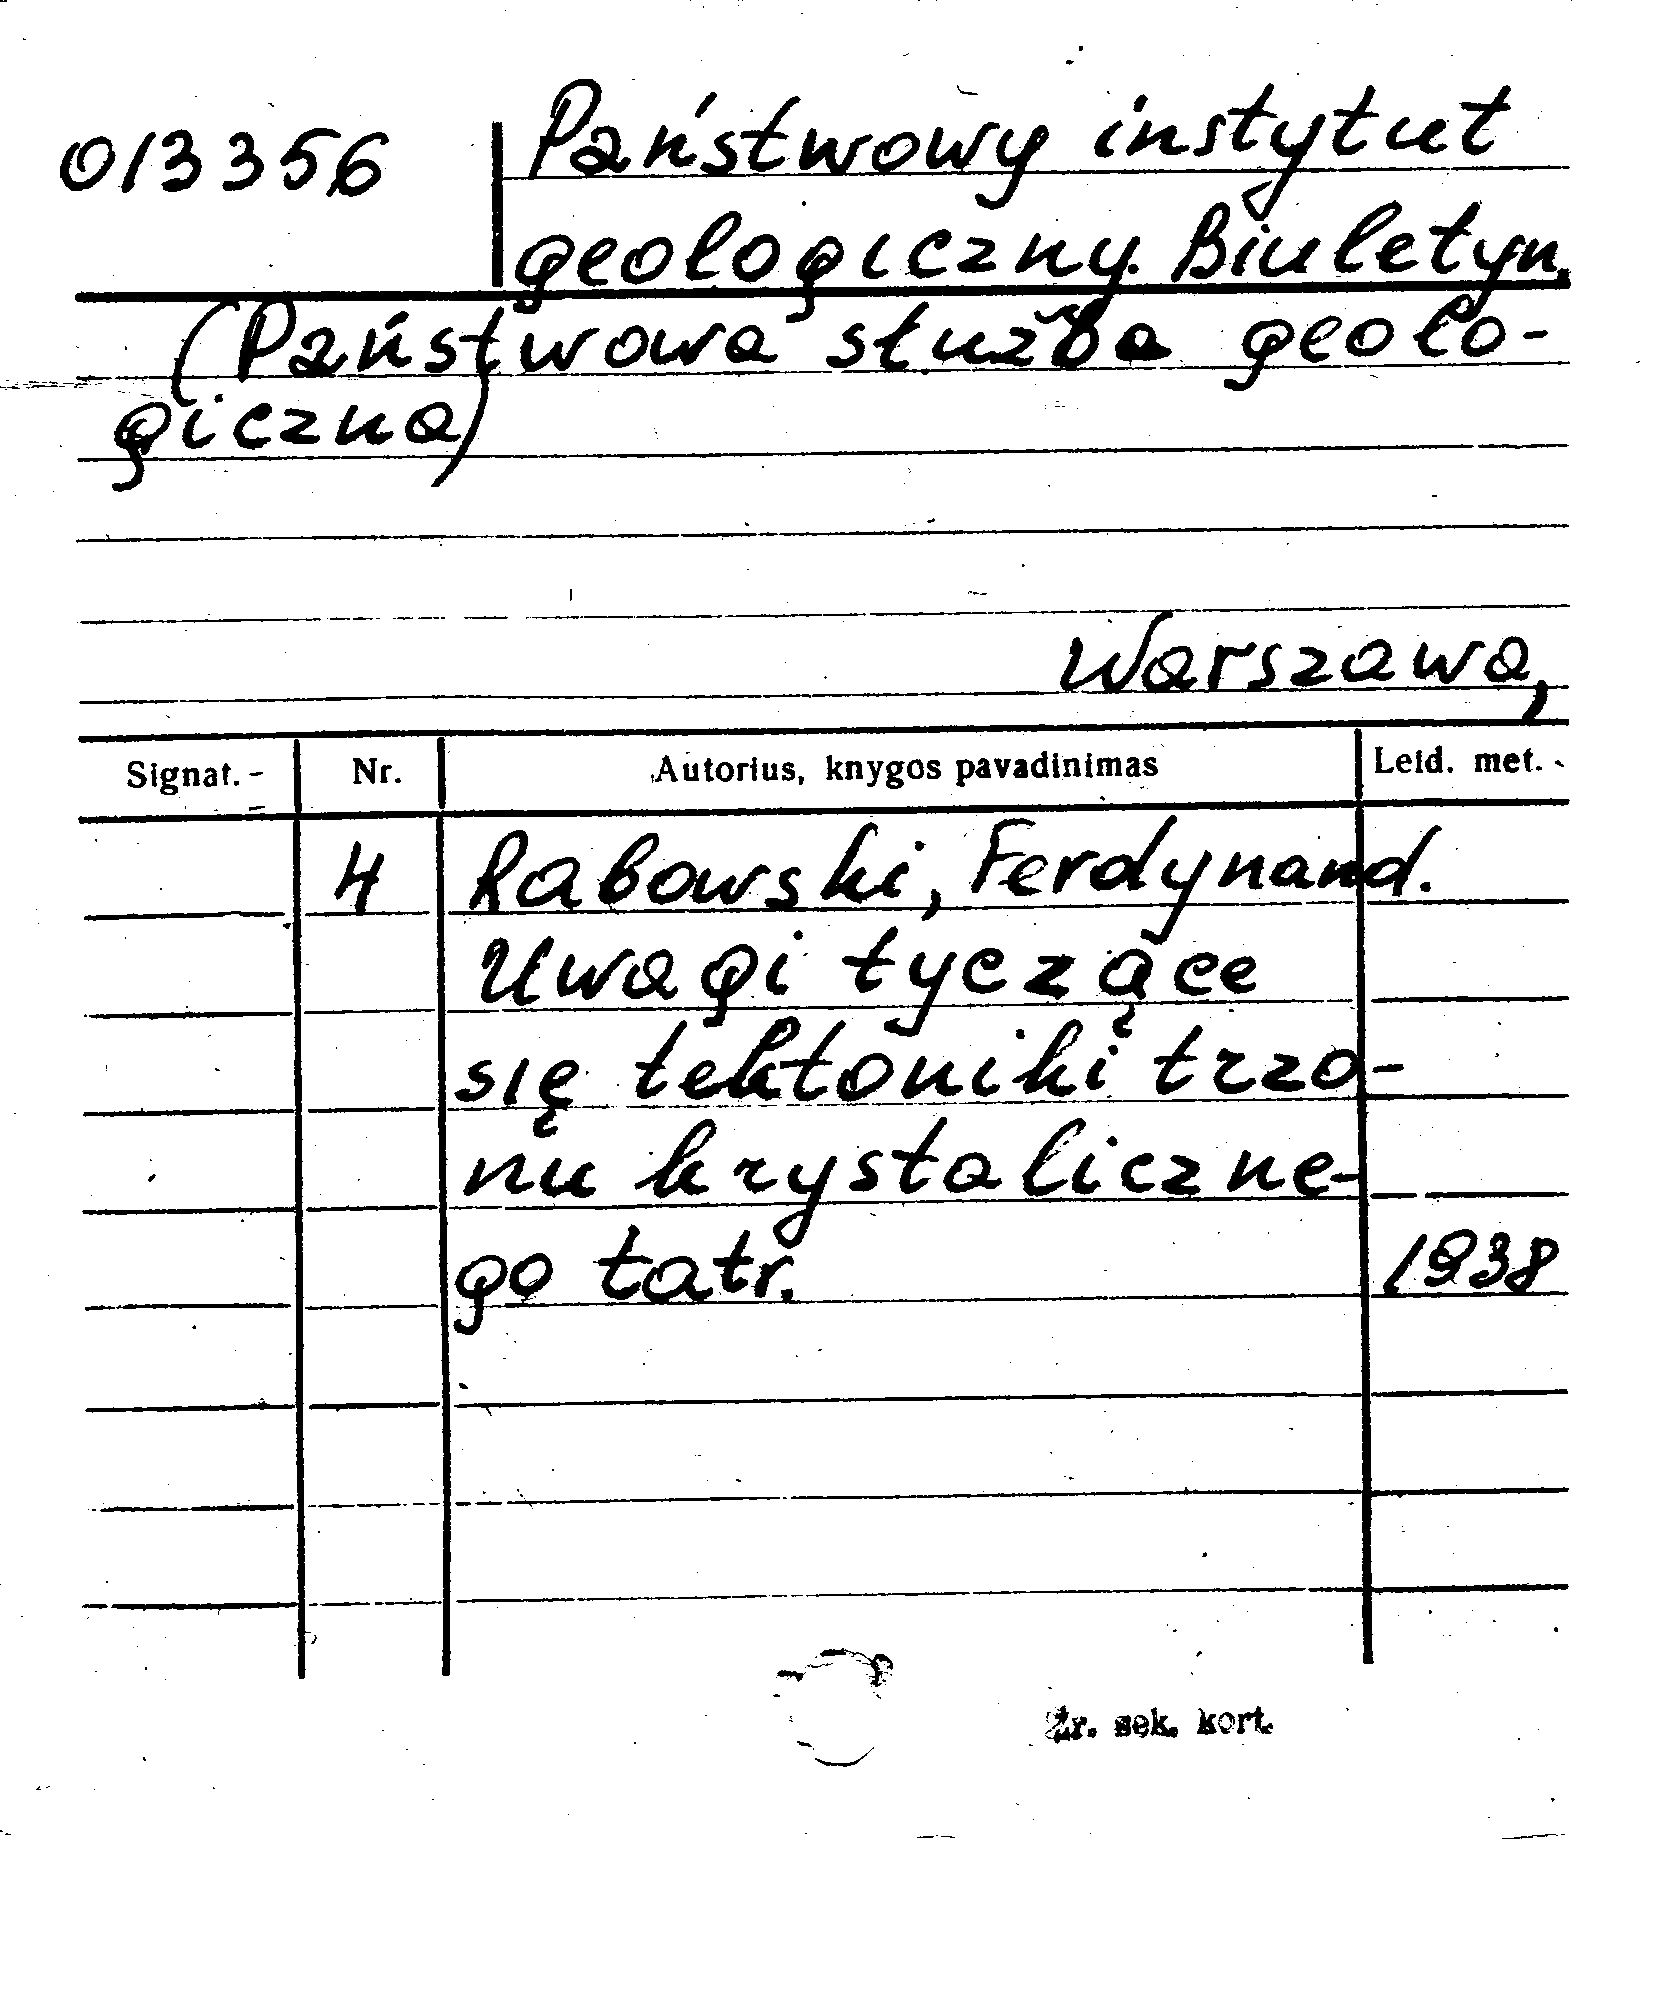 013356 Państwowy instytut
geologiczny. Biuletyn.
(Państwowa służba geolo-
giczna)
Warszawa,
Signat. Nr. Autorius, knygos pavadinimas Leid. met.
4 Rabowski, Ferdynand.
Uwagi tyczące
się tektoniki trzo-
nu krystaliczne-
go tatr. 1938
Žr. sek. kort.